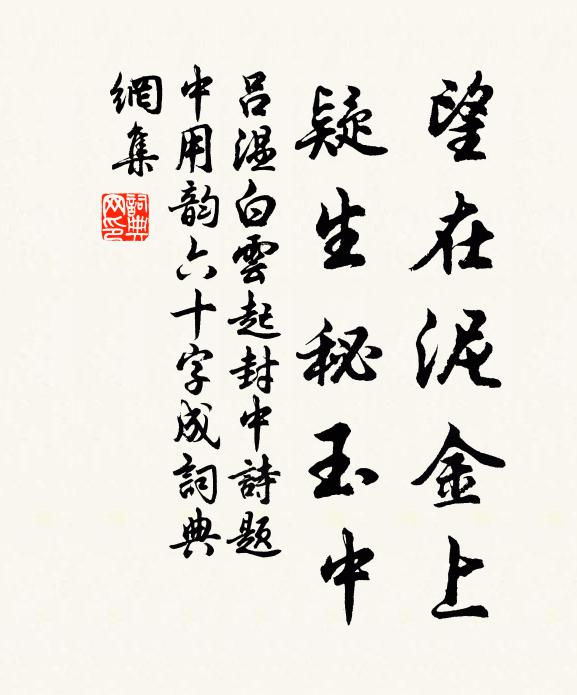 望在泥金上
疑生秘玉中
吕温白雲起封中詩题
中用韵六十字成詞典
網集
詞典网印